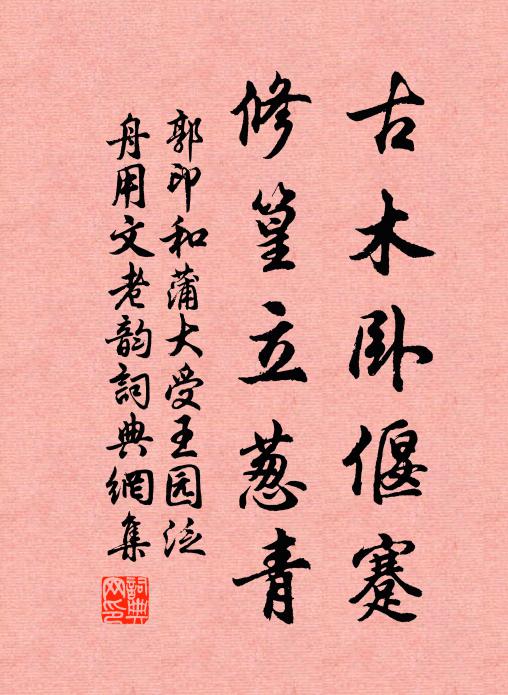 古木卧偃蹇
修篁立葱青
郭印和蒲大受王园泛
舟用文老韵詞典網集
詞典網印